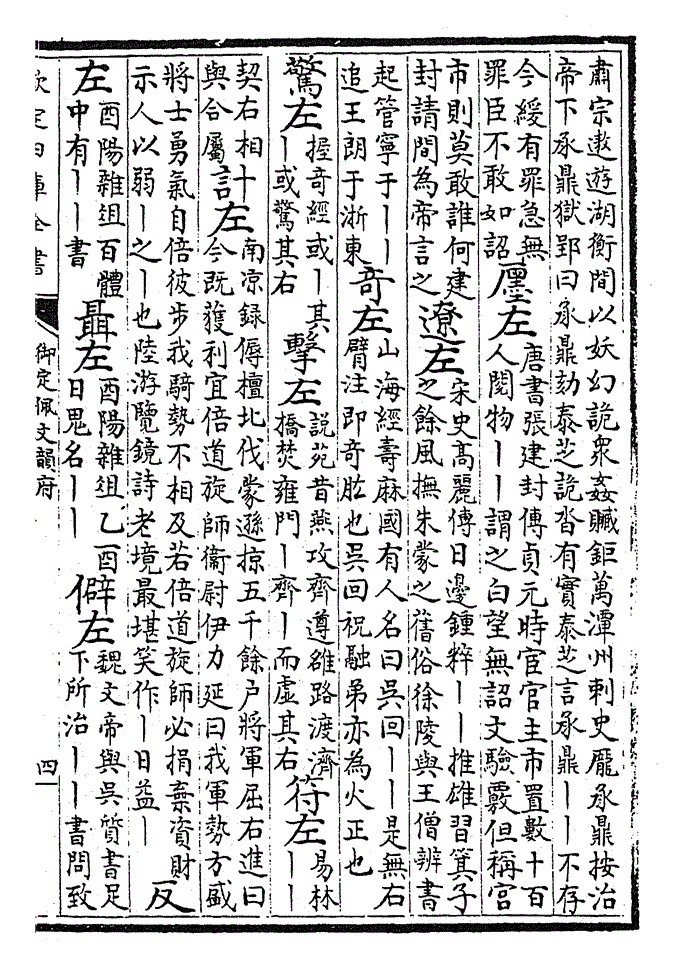 肅宗遨遊湖衡間以妖幻詭衆姦贓鉅萬潭州刺史龎承鼎按治
帝下承鼎獄郢曰承鼎劾泰芝詭沓有實泰芝言承鼎丨丨不存
今緩有罪急無
罪臣不敢如詔
廛左
唐書張建封傳貞元時宦官主市置數十百
人閱物丨丨謂之白望無詔文驗覈但稱宫
市則莫敢誰何建
封請間為帝言之
遼左
宋史髙麗傳日邊鍾粹丨丨推雄習箕子
之餘風撫朱蒙之舊俗徐陵與王僧辨書
起管寧于丨丨
追王朗于浙東
奇左
山海經壽麻國有人名曰吳回丨丨是無右
臂注即奇肱也吳回祝融弟亦為火正也
驚左
握竒經或丨其
丨或驚其右
擊左
説苑昔燕攻齊遵雒路渡濟
橋焚雍門丨齊丨而虚其右
符左
易林
丨丨
契右相
與合屬
計左
南凉録傉檀北伐蒙遜掠五千餘户將軍屈右進曰
今既獲利宜倍道旋師衞尉伊力延曰我軍勢方盛
將士勇氣自倍彼步我騎勢不相及若倍道旋師必捐棄資財
示人以弱丨之丨也陸游覽鏡詩老境最堪笑作丨日益丨
反
左
酉陽雜俎百體
中有丨丨書
聶左
酉陽雜俎乙酉
日鬼名丨丨
僻左
魏文帝與吳質書足
下所治丨丨書問致
欽定四庫全書
御定佩文韻府
四